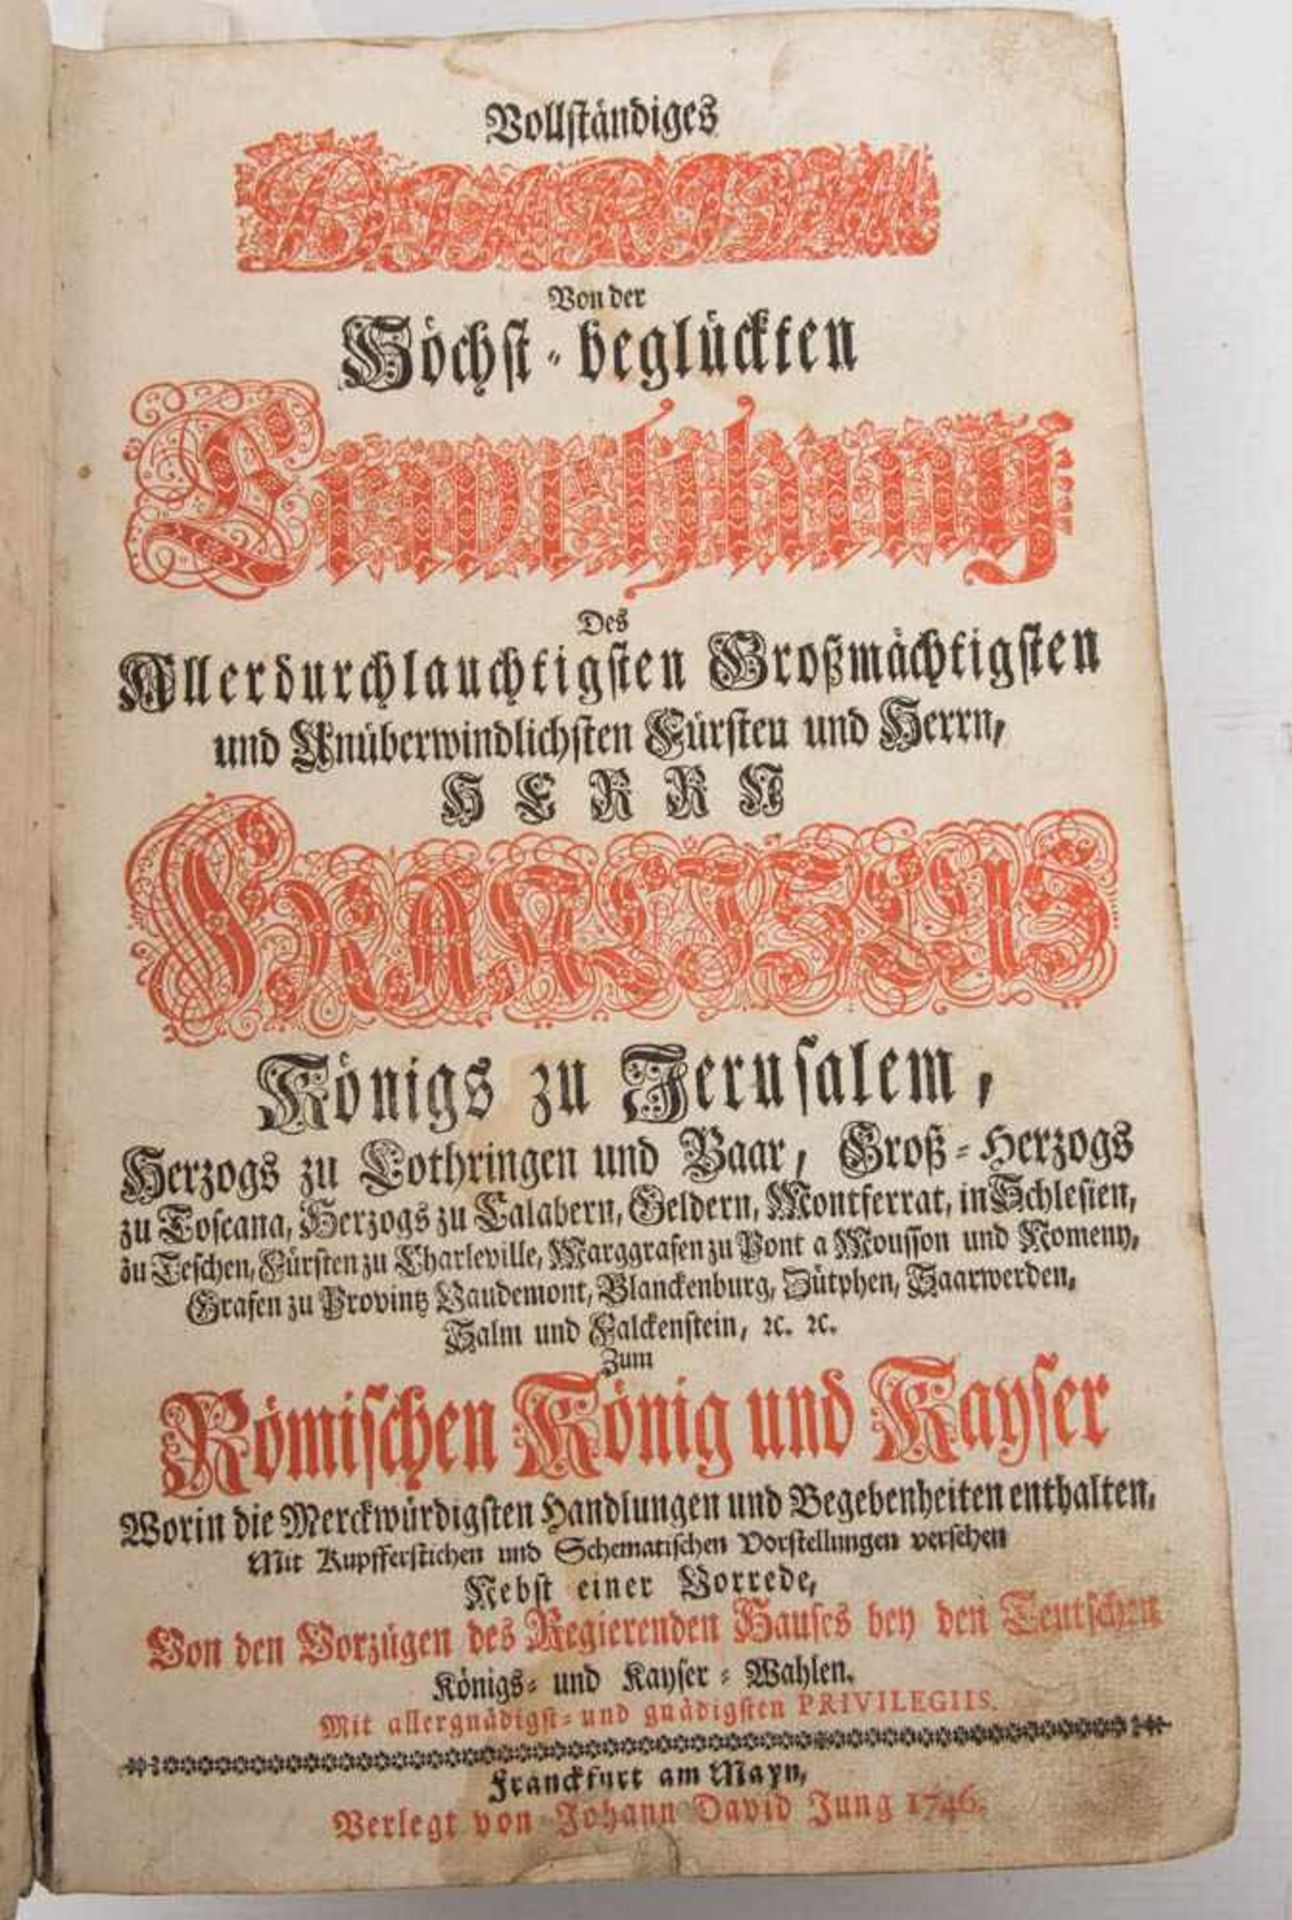 Vollständiges
DIARIUM
Von der
Höchst-beglückten
Erwehlung
Des
Allerdurchlauchtigsten Großmächtigsten
und Unüberwindlichsten Fürsten und Herrn,
HERRN
FRANCISCUS
Königs zu Jerusalem,
Herzogs zu Lothringen und Baar, Groß-Herzogs
zu Toscana, Herzogs zu Calabern, Geldern, Montferrat, in Schlesien,
zu Teschen, Fürsten zu Charleville, Marggrafen zu Pont a Mousson und Nomeny,
Grafen zu Provintz Vaudemont, Blanckenburg, Zütphen, Saarwerden,
Salm und Falckenstein, ꝛc. ꝛc.
Zum
Römischen König und Kayser
Worin die Merckwürdigsten Handlungen und Begebenheiten enthalten,
Mit Kupfferstichen und Schematischen Vorstellungen versehen
Nebst einer Vorrede,
Von den Vorzügen des Regierenden Hauses bey den Teutschen
Königs- und Kayser-Wahlen.
Mit allergnädigst- und gnädigsten PRIVILEGIIS.
Franckfurt am Mayn,
Verlegt von Johann David Jung 1746.